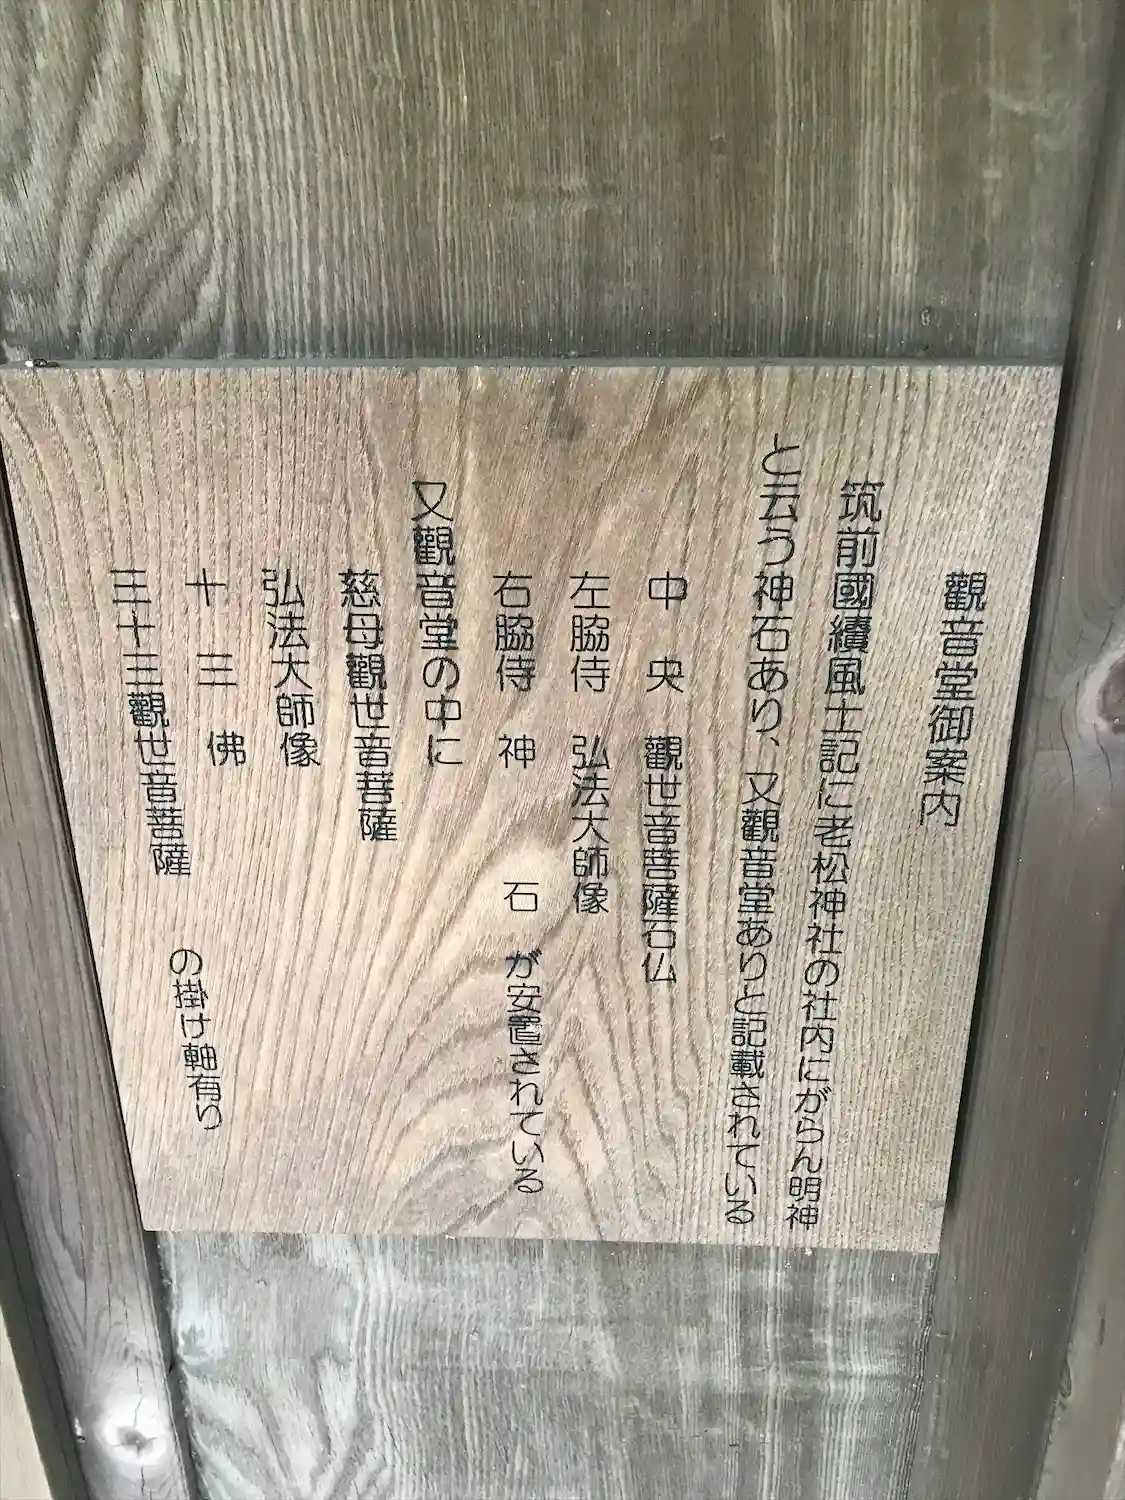 觀音堂御案内
筑前國續風土記に老松神社の社内にがらん明神
と云う神石あり、又觀音堂ありと記載されている
中央 觀世音菩薩石仏
左脇侍 弘法大師像
右脇侍 神石が安置されている
又觀音堂の中に
慈母觀世音菩薩
弘法大師像
十三佛
三十三觀世音菩薩 の掛け軸有り